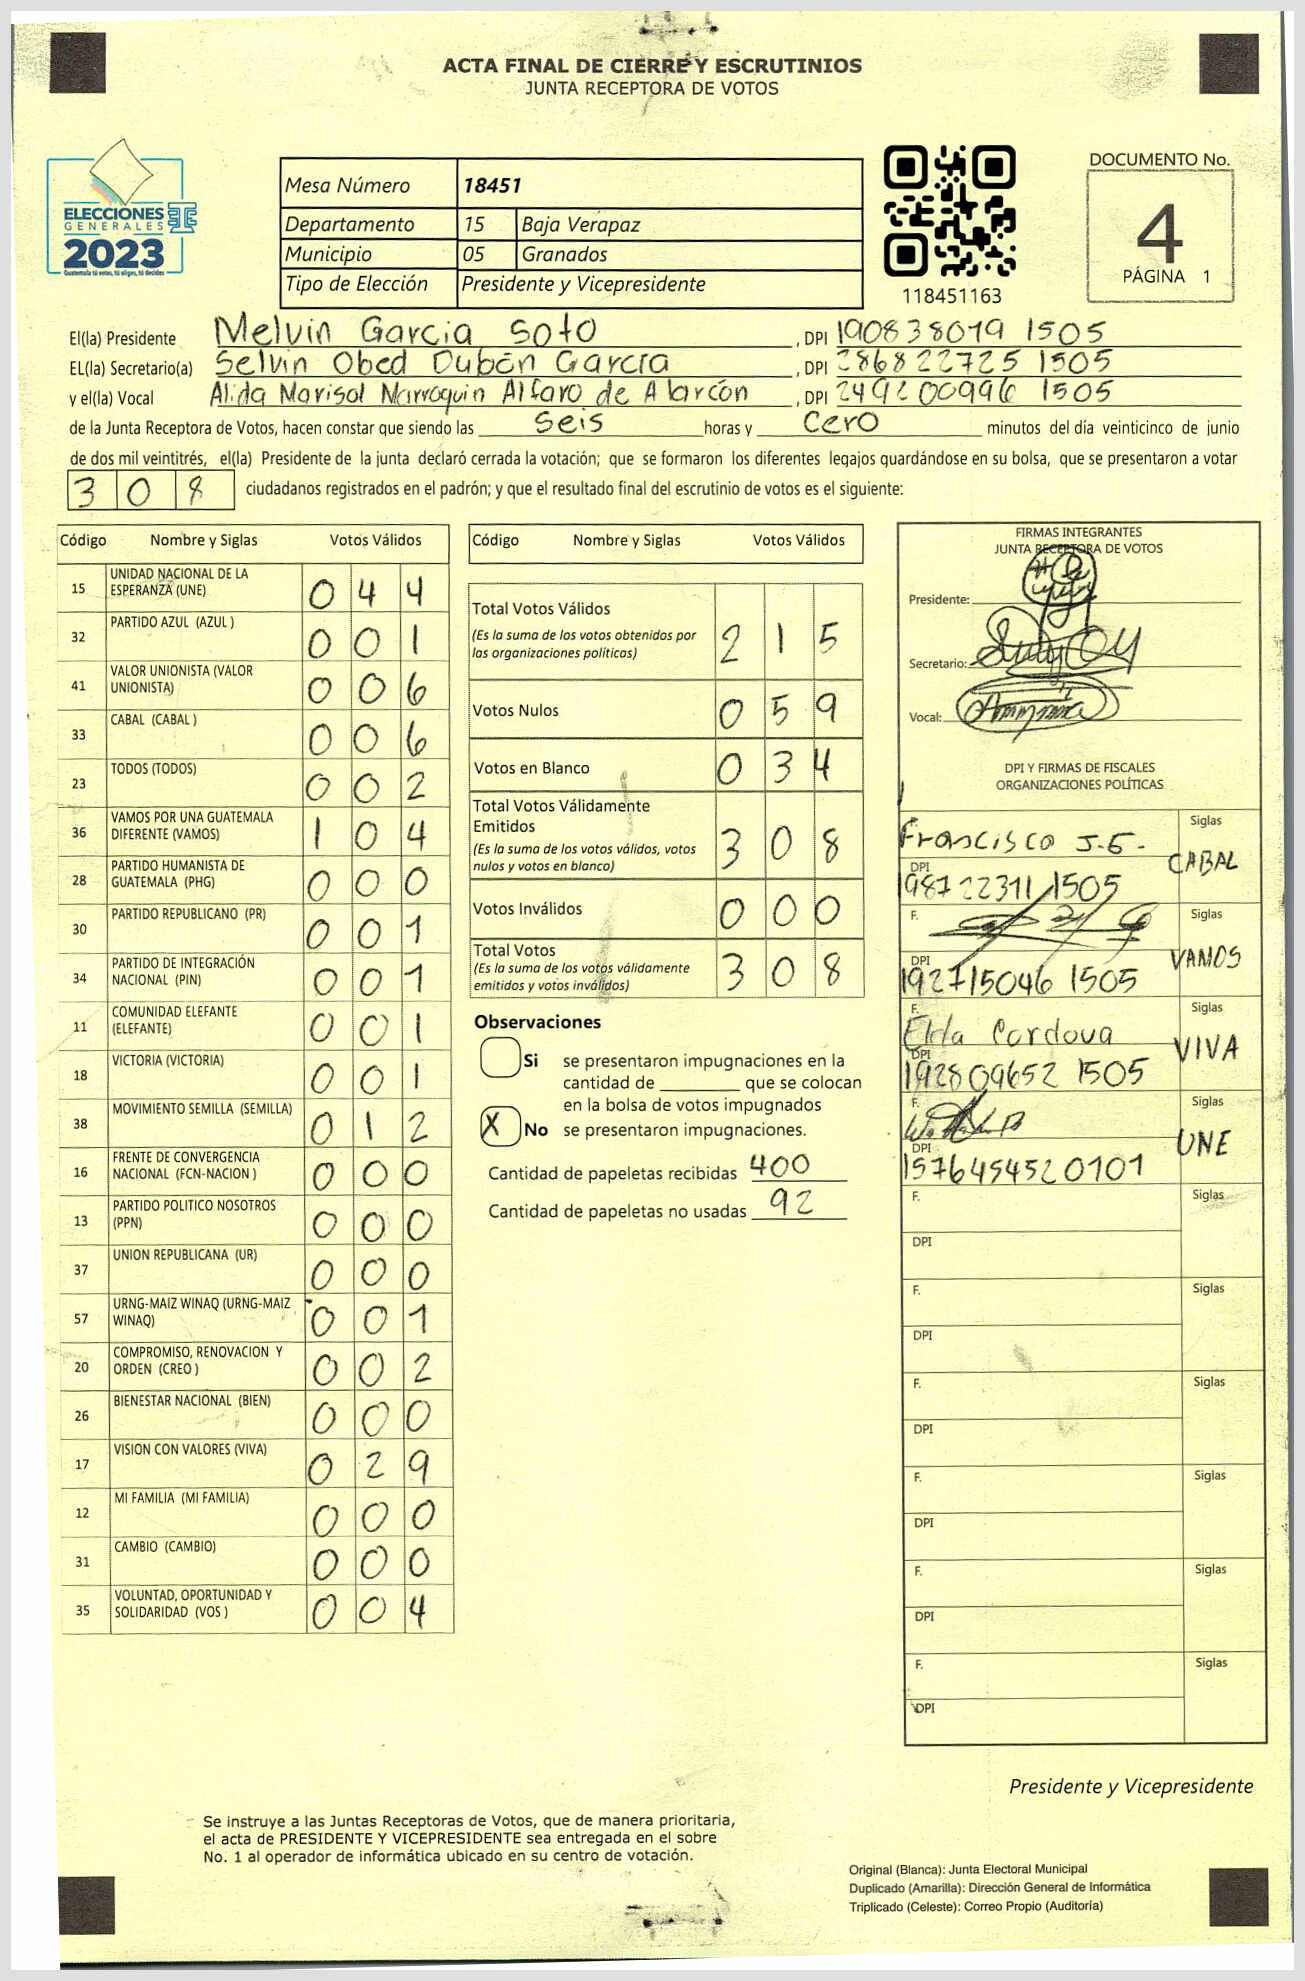 ACTA FINAL DE CIERRE Y ESCRUTINIOS
JUNTA RECEPTORA DE VOTOS
ELECCIONES
GENERALES
2023
Guatemala tú votas, tú eliges, tú decides
Mesa Número 18451
Departamento 15 Baja Verapaz
Municipio 05 Granados
Tipo de Elección Presidente y Vicepresidente
118451163
DOCUMENTO No.
4
PÁGINA 1
El(la) Presidente Melvin Garcia Soto , DPI 190838079 1505
EL(la) Secretario(a) Selvin Obed Dubón García , DPI 286822725 1505
y el(la) Vocal Alida Marisol Marroquin Alfaro de Alarcón , DPI 249200996 1505
de la Junta Receptora de Votos, hacen constar que siendo las Seis horas y Cero minutos del día veinticinco de junio
de dos mil veintitrés, el(la) Presidente de la junta declaró cerrada la votación; que se formaron los diferentes legajos guardándose en su bolsa, que se presentaron a votar
308 ciudadanos registrados en el padrón; y que el resultado final del escrutinio de votos es el siguiente:
Código Nombre y Siglas Votos Válidos
15 UNIDAD NACIONAL DE LA
ESPERANZA (UNE) 044
32 PARTIDO AZUL (AZUL ) 001
41 VALOR UNIONISTA (VALOR
UNIONISTA) 006
33 CABAL (CABAL ) 006
23 TODOS (TODOS) 002
36 VAMOS POR UNA GUATEMALA
DIFERENTE (VAMOS) 104
28 PARTIDO HUMANISTA DE
GUATEMALA (PHG) 000
30 PARTIDO REPUBLICANO (PR) 001
34 PARTIDO DE INTEGRACIÓN
NACIONAL (PIN) 001
11 COMUNIDAD ELEFANTE
(ELEFANTE) 001
18 VICTORIA (VICTORIA) 001
38 MOVIMIENTO SEMILLA (SEMILLA) 012
16 FRENTE DE CONVERGENCIA
NACIONAL (FCN-NACION ) 000
13 PARTIDO POLITICO NOSOTROS
(PPN) 000
37 UNION REPUBLICANA (UR) 000
57 URNG-MAIZ WINAQ (URNG-MAIZ
WINAQ) 001
20 COMPROMISO, RENOVACION Y
ORDEN (CREO ) 002
26 BIENESTAR NACIONAL (BIEN) 000
17 VISION CON VALORES (VIVA) 029
12 MI FAMILIA (MI FAMILIA) 000
31 CAMBIO (CAMBIO) 000
35 VOLUNTAD, OPORTUNIDAD Y
SOLIDARIDAD (VOS ) 004
Código Nombre y Siglas Votos Válidos
Total Votos Válidos
(Es la suma de los votos obtenidos por
las organizaciones políticas) 215
Votos Nulos 059
Votos en Blanco 034
Total Votos Válidamente
Emitidos
(Es la suma de los votos válidos, votos
nulos y votos en blanco) 308
Votos Inválidos 000
Total Votos
(Es la suma de los votos válidamente
emitidos y votos inválidos) 308
Observaciones
Si se presentaron impugnaciones en la
cantidad de ________ que se colocan
en la bolsa de votos impugnados
X No se presentaron impugnaciones.
Cantidad de papeletas recibidas 400
Cantidad de papeletas no usadas 92
FIRMAS INTEGRANTES
JUNTA RECEPTORA DE VOTOS
Presidente:
Secretario:
Vocal:
DPI Y FIRMAS DE FISCALES
ORGANIZACIONES POLÍTICAS
F. Francisco J.G. Siglas
DPI 198722311 1505 CABAL
F. Siglas
DPI 192715046 1505 VAMOS
F. Elda Cordova Siglas
DPI 192809652 1505 VIVA
F. Siglas
DPI 1576454520101 UNE
F. Siglas
DPI
F. Siglas
DPI
F. Siglas
DPI
F. Siglas
DPI
F. Siglas
DPI
F. Siglas
DPI
Presidente y Vicepresidente
Se instruye a las Juntas Receptoras de Votos, que de manera prioritaria,
el acta de PRESIDENTE Y VICEPRESIDENTE sea entregada en el sobre
No. 1 al operador de informática ubicado en su centro de votación.
Original (Blanca): Junta Electoral Municipal
Duplicado (Amarilla): Dirección General de Informática
Triplicado (Celeste): Correo Propio (Auditoría)